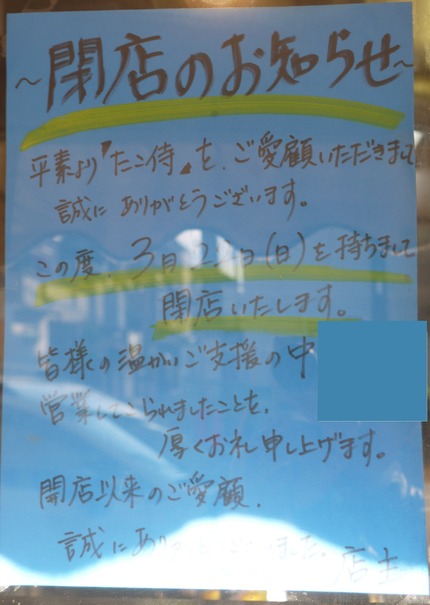 ～閉店のお知らせ～
平素より『たこ侍』を、ご愛顧いただきまして
誠にありがとうございます。
この度、3月22日(日)を持ちまして
閉店いたします。
皆様の温かいご支援の中
営業してこられましたことを、
厚くお礼申し上げます。
開店以来のご愛顧、
誠にあり
ました。
店主